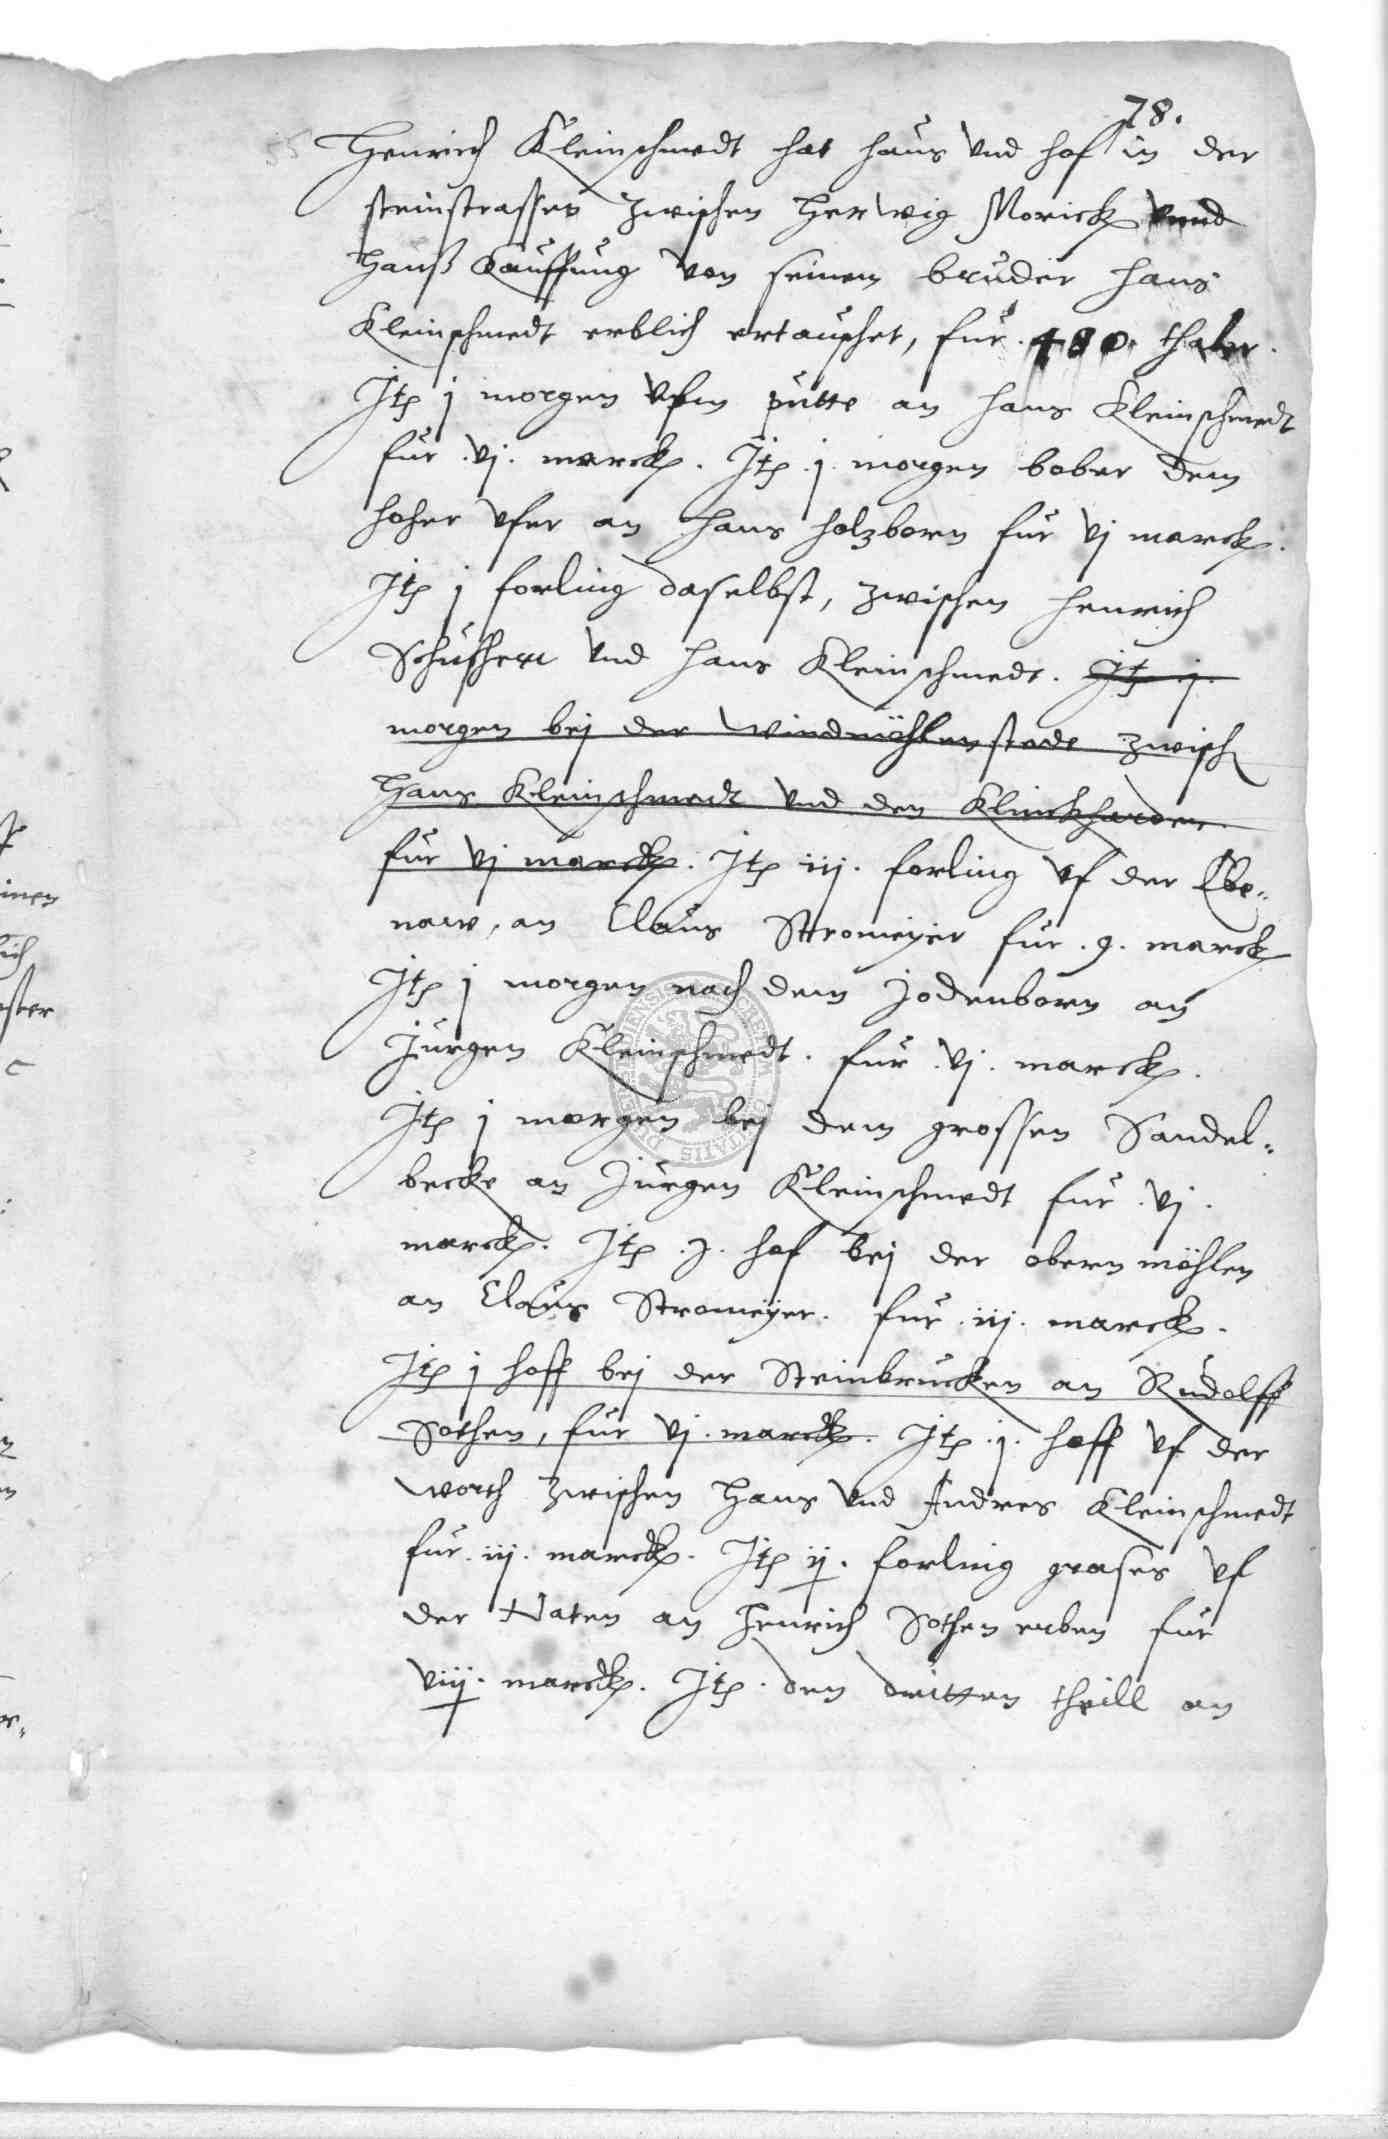 78.
55 Henrich Kleinschmedt hat haus vnd hof in der
steinstrassen zwischen Herwig Morick vnnd
Hanß Kauffung von seinem bruder Hans
Kleinschmedt erblich ertauschet, fur 480. thaler.
Jtem j morgen vfm putte an Hans Kleinschmedt
fur .vj. marck. Jtem .j. morgen bober dem
hoher vfer an Hans Holzborn fur vj marck.
Jtem j forling daselbst, zwischen Henrich
und Hans Kleinschmedt. Jtem j.
morgen bej der windmöhlenstede zwisch
Hans Kleinschmedt vnd den Klinckharden
fur vj marck. Jtem iij. forling vf der Ebe„
naw, an Claus Stromeyer fur .9. marck
Jtem j morgen nach dem Jodenborn an
Jurgen Kleinschmedt. fur .vj. marck.
Jtem j morgen bej dem grossen Sandel„
becke an Jurgen Kleinschmedt fur .vj.
marck. Jtem .j. hof bej der obern möhlen
an Claus Stromeyer. fur .iij. marck.
Jtem j hoff bej der Steinbrucken an Rudolff
Sothen, fur vj. marck. Jtem .j. hoff vf der
worth zwischen Hans vnd Andres Kleinschmedt
fur .iij. marck. Jtem ij. forling grases vf
der an Henrich Sothen erben fur
viij. marck. Jtem. den dritten theill an